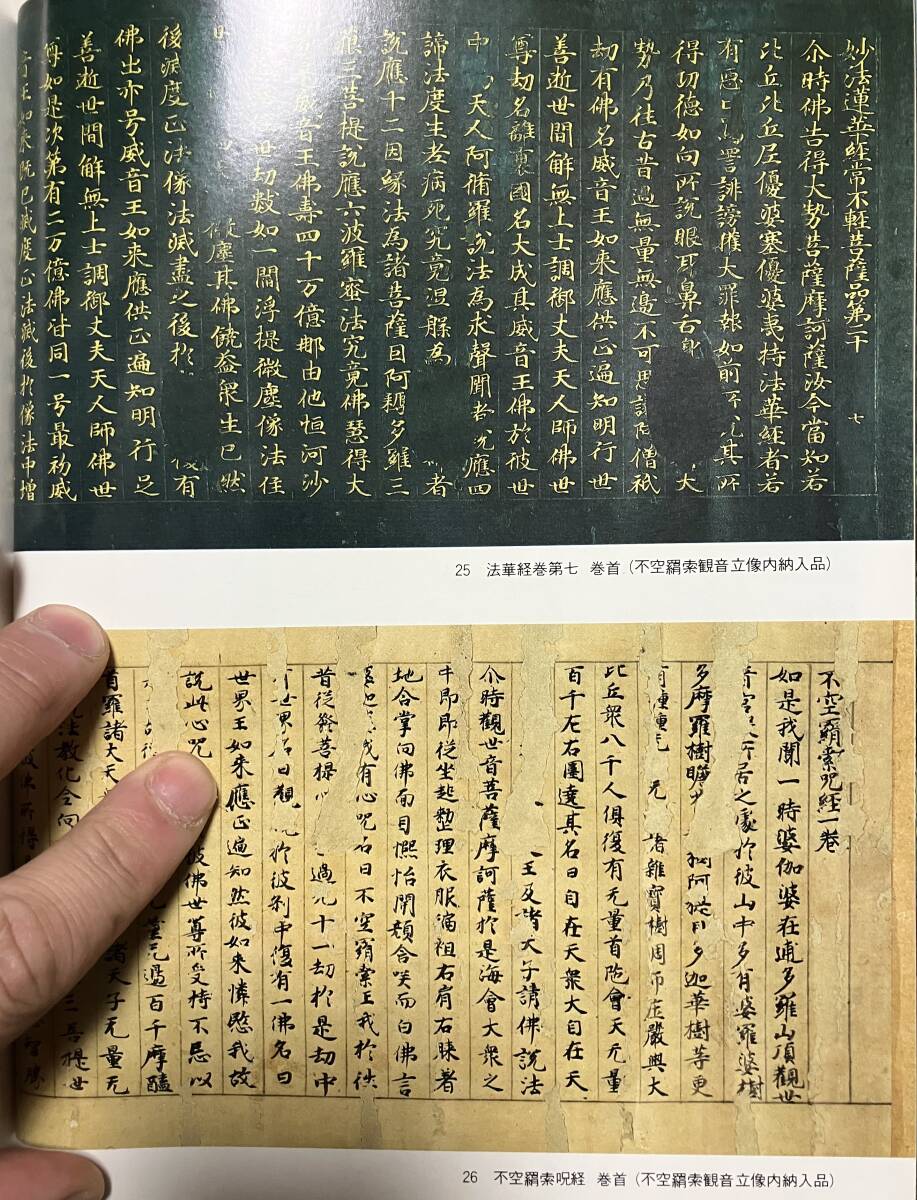 妙法蓮華経常不軽菩薩品第二十 七
尒時佛告得大勢菩薩摩訶薩汝今當知若
比丘比丘尼優婆塞優婆夷持法華経者若
有惡口罵詈誹謗獲大罪報如前所說其所
得功徳如向所說眼耳鼻舌 大
勢乃往古昔過無量無邊不可思議阿僧祇
劫有佛名威音王如来應供正遍知明行足
善逝世間解無上士調御丈夫天人師佛世
尊劫名離衰國名大成其威音王佛於彼世
中 天人阿脩羅說法為求聲聞者說應四
諦法度生老病死究竟涅槃為 者
說應十二因縁法為諸菩薩因阿耨多羅三
藐三菩提說應六波羅蜜法究竟佛慧得大
威音王佛壽四十万億那由他恒河沙
世劫數如一閻浮提微塵像法住
微塵其佛饒益衆生已然
後滅度正法像法滅盡之後於 有
佛出亦号威音王如来應供正遍知明行足
善逝世間解無上士調御丈夫天人師佛世
尊如是次第有二万億佛皆同一号最初威
音王如来既已滅度正法滅後於像法中增
25 法華経巻第七 巻首 (不空羂索観音立像内納入品)
不空羂索呪経一巻
如是我聞一時婆伽婆在逋多羅山頂觀世
所居之處於彼山中多有婆羅婆樹
多摩羅樹瞻 阿 多迦華樹等更
有 无 諸雜寶樹周帀庄嚴與大
比丘衆八千人俱復有无量首陁會天无量
百千左右圍遶其名曰自在天衆大自在天
王及諸天子請佛說法
尒時觀世音菩薩摩訶薩於是海會大衆之
中即即從坐起整理衣服偏袒右肩右膝著
地合掌向佛面目熈怡開顏含咲而白佛言
我有心呪名曰不空羂索王我於往
昔從發菩提 過九十一劫於是劫中
有世界名曰觀 於彼刹中復有一佛名曰
世界王如来應正遍知然彼如来憐愍我故
說此心呪 彼佛世尊所受持不忘以
无量无過百千摩醯
首羅諸大天 諸天子无量无
法教化令向 三菩提世
彼佛所得
26 不空羂索呪経 巻首 (不空羂索観音立像内納入品)